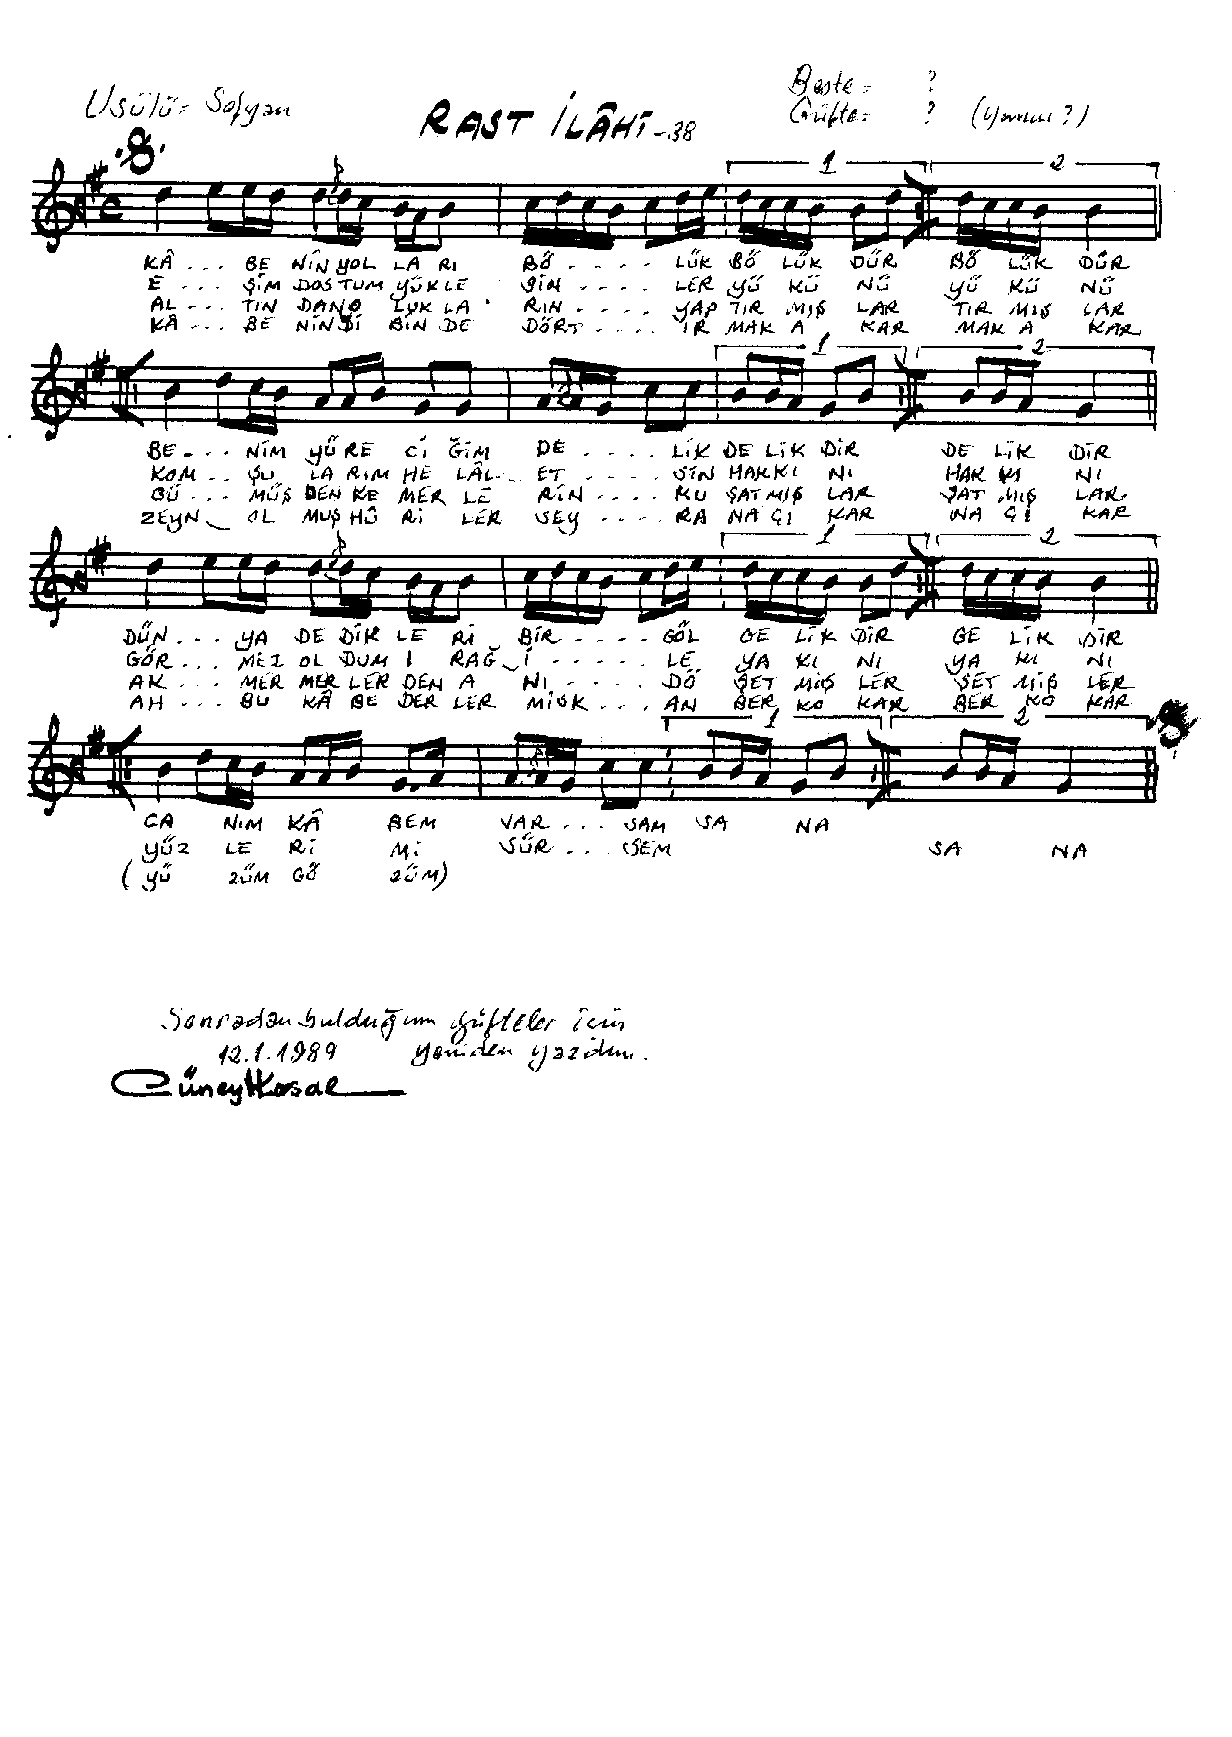 Usûlü= Sofyan
Beste= ?
RAST İLÂHİ -38
Güfte= ? (Yunus?)
1 2
KÂ... BE NİN YOL LA RI BÖ..... LÜK BÖ LÜK DÜR BÖ LÜK DÜR
E... ŞİM DOSTUM YÜKLE SİN.... LER YÜ KÜ NÜ YÜ KÜ NÜ
AL... TIN DAN O LUK LA RIN..... YAP TIR MIŞ LAR TIR MIŞ LAR
KÂ... BE NİN Dİ BİN DE DÖRT.... IR MAK A KAR MAK A KAR
1 2
BE.... NİM YÜRE Cİ ĞİM DE ..... LİK DE LİK DİR DE LİK DİR
KOM.. ŞU LA RIM HE LÂL... ET ..... SİN HAKKI NI HAK KI NI
GÜ... MÜŞ DEN KE MER LE RİN.... KU ŞATMIŞ LAR ŞAT MIŞ LAR
ZEYN OL MUŞ HÛ Rİ LER SEY .... RA NA ÇI KAR NA ÇI KAR
1 2
DÜN... YA DE DİK LE Rİ BİR..... GÖL GE LİK DİR GE LİK DİR
GÖR... MEZ OL DUM I RAĞ I ..... LE YA KI NI YA KI NI
AK... MER MER LER DEN A NI..... DÖ ŞET MİŞ LER ŞET MİŞ LER
AH... BU KÂ BE DER LER MİSK... AN BER KO KAR BER KO KAR
1 2
CA NIM KÂ BEM VAR... SAM SA NA
YÜZ LE Rİ Mİ SÜR... SEM SA NA
(YÜ ZÜM GÖ ZÜM)
Sonradan bulduğum güfteler için
12.1.1989 yeniden yazdım.
Cüneyt Kosal